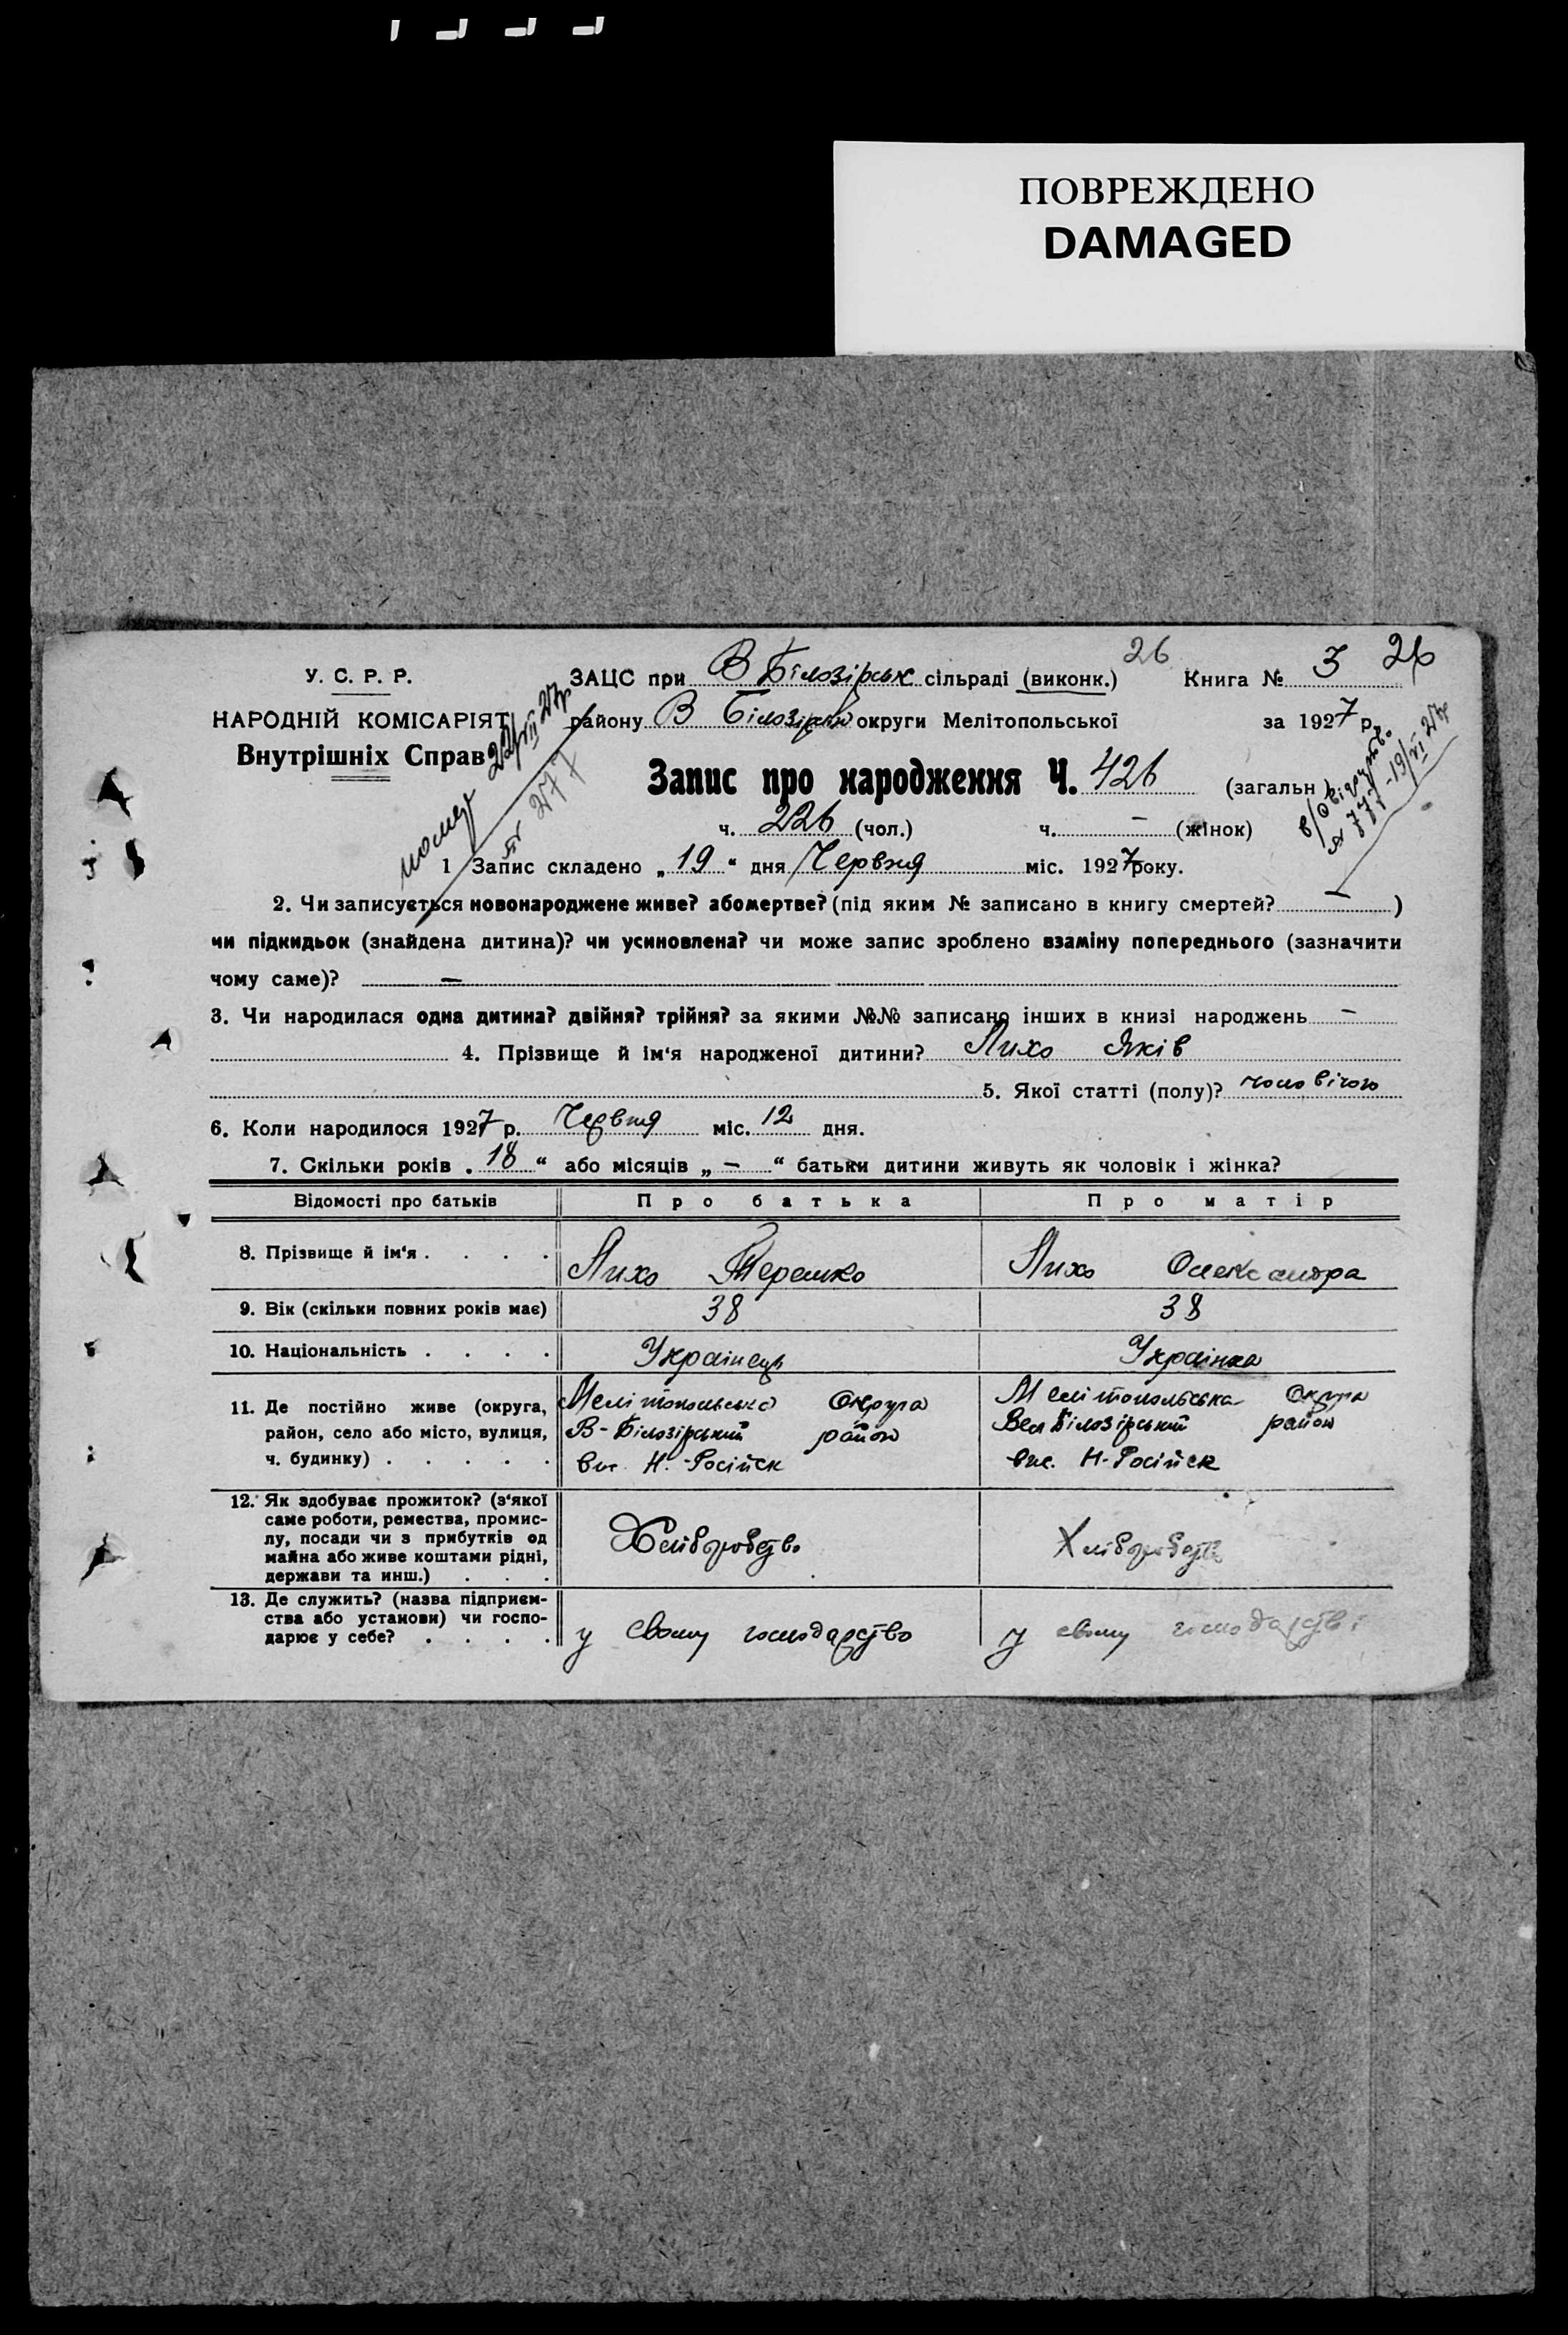 ПОВРЕЖДЕНО
DAMAGED
У. С. Р. Р.
НАРОДНІЙ КОМІСАРІЯТ
Внутрішніх Справ
26
26
ЗАЦС при В Білозірськ сільраді (виконк.) Книга № 3
району В Білозірськ округи Мелітопольської за 1927 р.
Запис про народження Ч. 426 (загальн.)
ч. 226 (чол.) ч. — (жінок)
помер 22/VII 27р
№ 277
№ 777 -19/VI 27р
1 Запис складено „19“ дня Червня міс. 1927 року.
2. Чи записується новонароджене живе? або мертве? (під яким № записано в книгу смертей? — )
чи підкидьок (знайдена дитина)? чи усиновлена? чи може запис зроблено взаміну попереднього (зазначити
чому саме)? —
3. Чи народилася одна дитина? двійня? трійня? за якими №№ записано інших в книзі народжень —
4. Прізвище й ім‘я народженої дитини? Лихо Яків
5. Якої статті (полу)? чоловічого
6. Коли народилося 1927 р. Червня міс. 12 дня.
7. Скільки років „18“ або місяців „—“ батьки дитини живуть як чоловік і жінка?
Відомості про батьків Про батька Про матір
8. Прізвище й ім‘я . . . . Лихо Терешко Лихо Олександра
9. Вік (скільки повних років має) 38 38
10. Національність . . . . Українець Українка
11. Де постійно живе (округа, Мелітопольська Округа Мелітопольська Округа
район, село або місто, вулиця, В-Білозірський район Вел Білозірський район
ч. будинку) . . . . . вис. Н.-Російск вис. Н-Російск
12. Як здобуває прожиток? (з‘якої
саме роботи, ремества, промис-
лу, посади чи з прибутків од
майна або живе коштами рідні,
держави та инш.) . . .
Хліборобство Хліборобств
13. Де служить? (назва підприєм-
ства або установи) чи госпо-
дарює у себе? . . . .
у свому господарство у свому господарстві